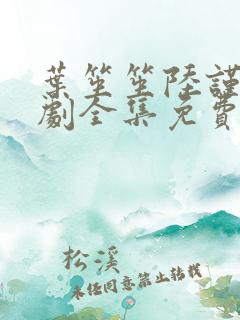 葉笙笙陸謹
劇全集免費
松溪
未经同意禁止转载